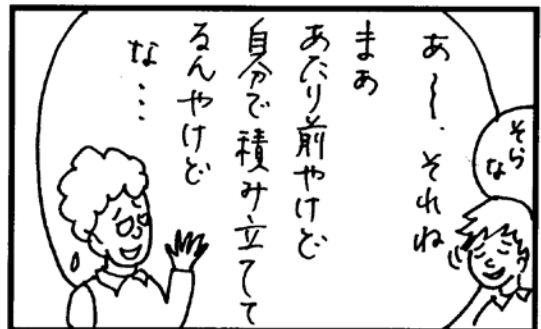 あ～、それね
まあ
あたり前やけど
自分で積み立てて
るんやけど
な…
そら
な